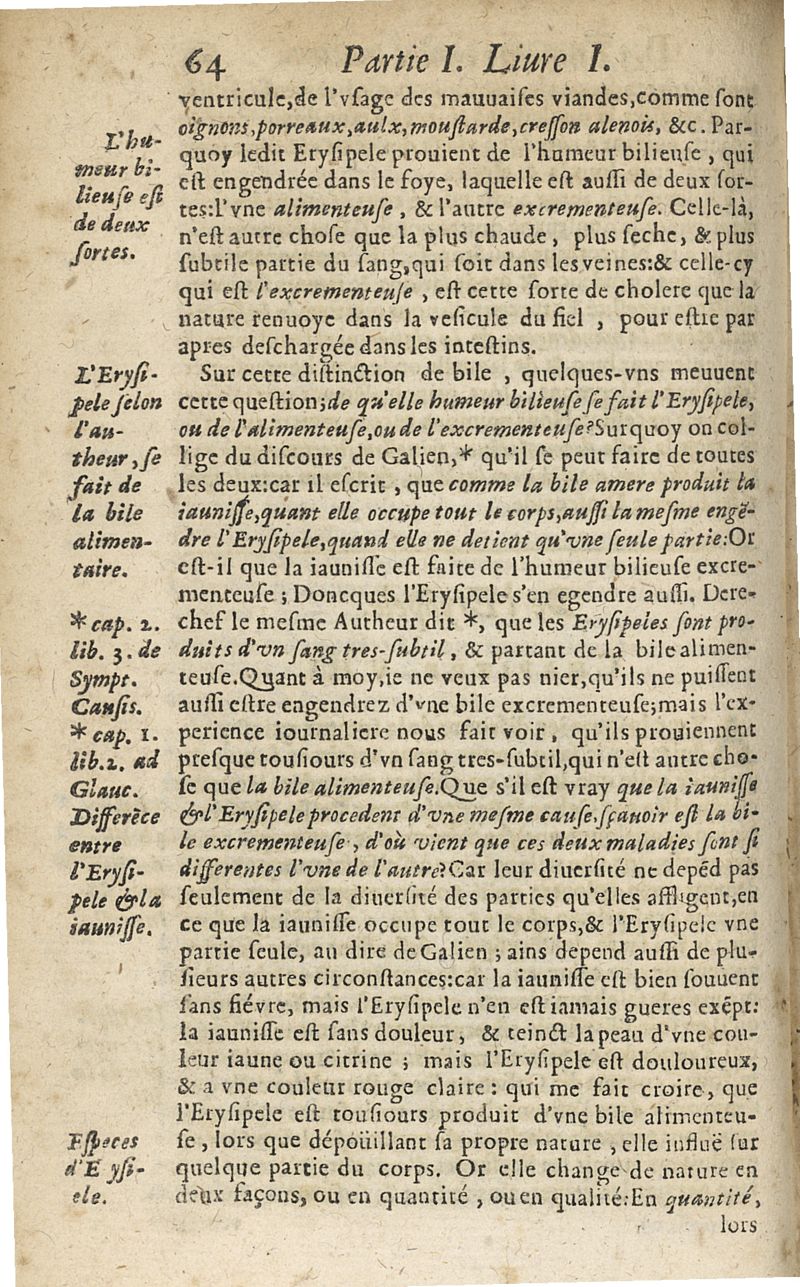 64 Partie I. Liure I.
ventricule, de l'vsage des mauuaises viandes, comme sont
oignons, porreaux, aulx, moustarde, cresson alenois, &c. Par-
quoy ledit Erysipele prouient de l'humeur bilieuse, qui
est engendrée dans le foye, laquelle est aussi de deux sor-
tes: l'vne alimenteuse, & l'autre excrementeuse. Celle-là,
n'est autre chose que la plus chaude, plus seche, & plus
subtile partie du sang, qui soit dans les veines: & celle-cy
qui est l'excrementeuse, est cette sorte de cholere que la
nature renuoye dans la vesicule du fiel, pour estre par
apres deschargée dans les intestins.
Sur cette distinction de bile, quelques-vns meuuent
cette question; de qu'elle humeur bilieuse se fait l'Erysipele,
ou de l'alimenteuse, ou de l'excrementeuse? Surquoy on col-
lige du discours de Galien, * qu'il se peut faire de toutes
les deux: car il escrit, que comme la bile amere produit la
iaunisse, quant elle occupe tout le corps, aussi la mesme engẽ-
dre l'Erysipele, quand elle ne detient qu'vne seule partie: Or
est-il que la iaunisse est faite de l'humeur bilieuse excre-
menteuse; Doncques l'Erysipele s'en egendre aussi. Dere-
chef le mesme Autheur dit *, que les Erysipeles sont pro-
duits d'vn sang tres-subtil, & partant de la bile alimen-
teuse. Quant à moy, ie ne veux pas nier, qu'ils ne puissent
aussi estre engendrez d'vne bile excrementeuse; mais l'ex-
perience iournaliere nous fait voir, qu'ils prouiennent
presque tousiours d'vn sang tres-subtil, qui n'est autre cho-
se que la bile alimenteuse. Que s'il est vray que la iaunisse
& l'Erysipele procedent d'vne mesme cause, sçauoir est la bi-
le excrementeuse, d'où vient que ces deux maladies sont si
differentes l'vne de l'autre? Car leur diuersité ne depẽd pas
seulement de la diuersité des parties qu'elles affligent, en
ce que la iaunisse occupe tout le corps, & l'Erysipele vne
partie seule, au dire de Galien; ains depend aussi de plu-
sieurs autres circonstances: car la iaunisse est bien souuent
sans fiévre, mais l'Erysipele n'en est iamais gueres exẽpt:
la iaunisse est sans douleur, & teinct la peau d'vne cou-
leur iaune ou citrine; mais l'Erysipele est douloureux,
& a vne couleur rouge claire: qui me fait croire, que
l'Erysipele est tousiours produit d'vne bile alimenteu-
se, lors que dépoüillant sa propre nature, elle influë sur
quelque partie du corps. Or elle change de nature en
deux façons, ou en quantité, ou en qualité: En quantité,
lors
L'hu-
meur bi-
lieuse est
de deux
sortes.
L'Erysi-
pele selon
l'au-
theur, se
fait de
la bile
alimen-
taire.
* cap. 2.
lib. 3. de
Sympt.
Causis.
* cap. 1.
lib. 2. ad
Glauc.
Differẽce
entre
l'Erysi-
pele & la
iaunisse.
Especes
d'E ysi-
ele.